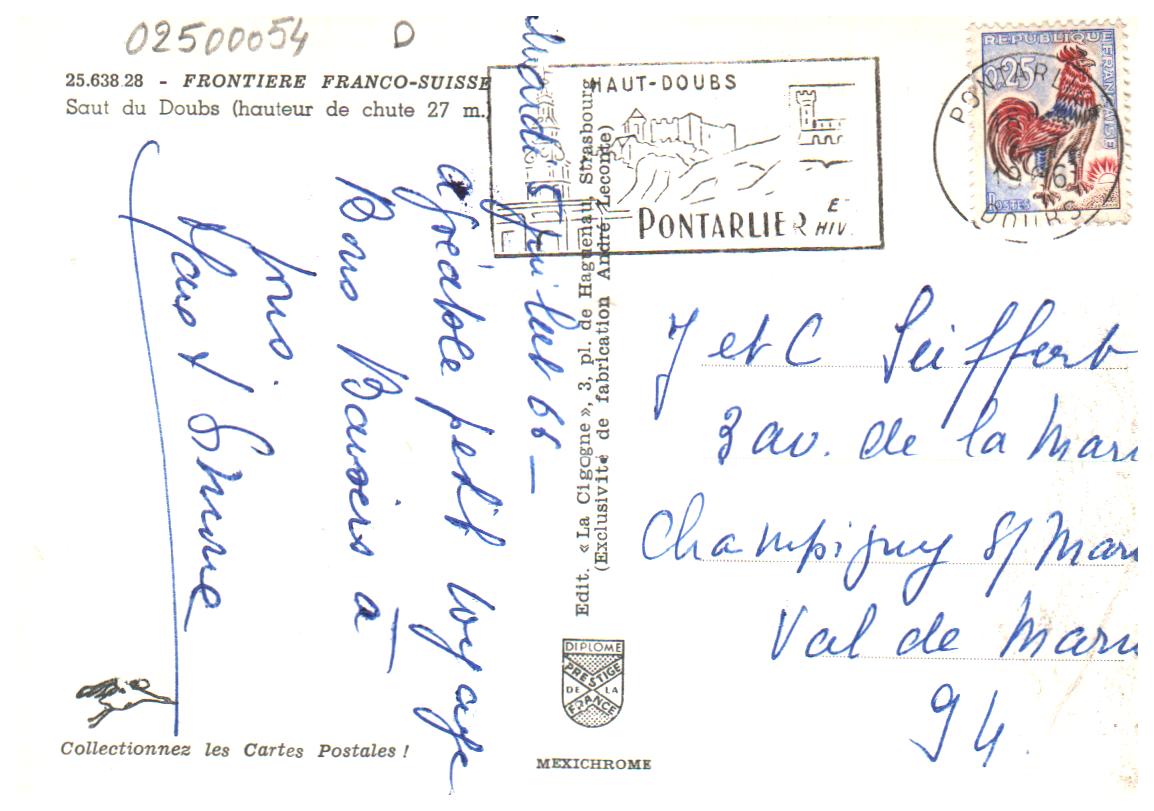 02500054 D
25.638.28 - FRONTIERE FRANCO-SUISSE
Saut du Doubs (hauteur de chute 27 m.)
HAUT-DOUBS
PONTARLIER
E
HIV
REPUBLIQUE FRANÇAISE
0,25
POSTES
PONTARLIER
DOUBS
juillet 66 -
agréable petit voyage
Bons Baisers à
tous
Simone
Edit. « La Cigogne », 3, pl. de Haguenau, Strasbourg
(Exclusivité de fabrication André Leconte)
J et C Seiffert
3 av. de la Marn
Champigny s/ Marn
Val de Marn
94.
DIPLOME
PRESTIGE
DE LA
FRANCE
Collectionnez les Cartes Postales !
MEXICHROME